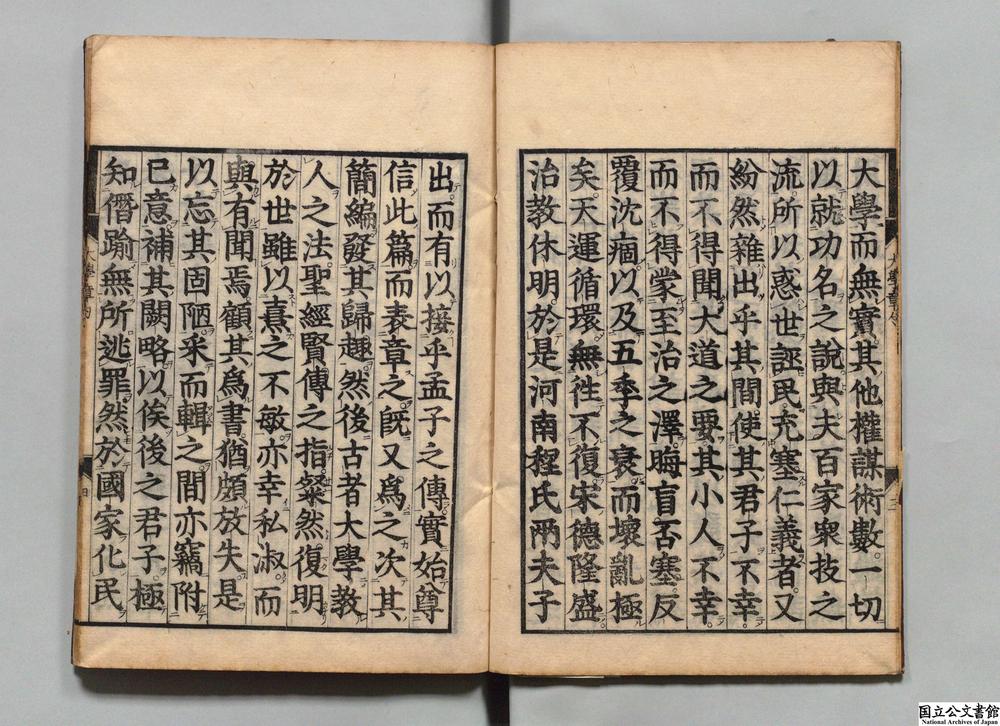 大學而無實其他權謀術數一切
以就功名之說與夫百家衆技之
流所以惑世誣民充塞仁義者又
紛然雜出乎其間使其君子不幸
而不得聞大道之要其小人不幸
而不得蒙至治之澤晦盲否塞反
覆沈痼以及五季之衰而壞亂極
矣天運循環無徃不復宋德隆盛
治教休明於是河南程氏兩夫子
出而有以接乎孟子之傳實始尊
信此篇而表章之旣又爲之次其
簡編發其歸趣然後古者大學教
人之法聖經賢傳之指粲然復明
於世雖以熹之不敏亦幸私淑而
與有聞焉顧其爲書猶頗放失是
以忘其固陋采而輯之間亦竊附
己意補其闕略以俟後之君子極
知僭踰無所逃罪然於國家化民
國立公文書館
National Archives of Japan